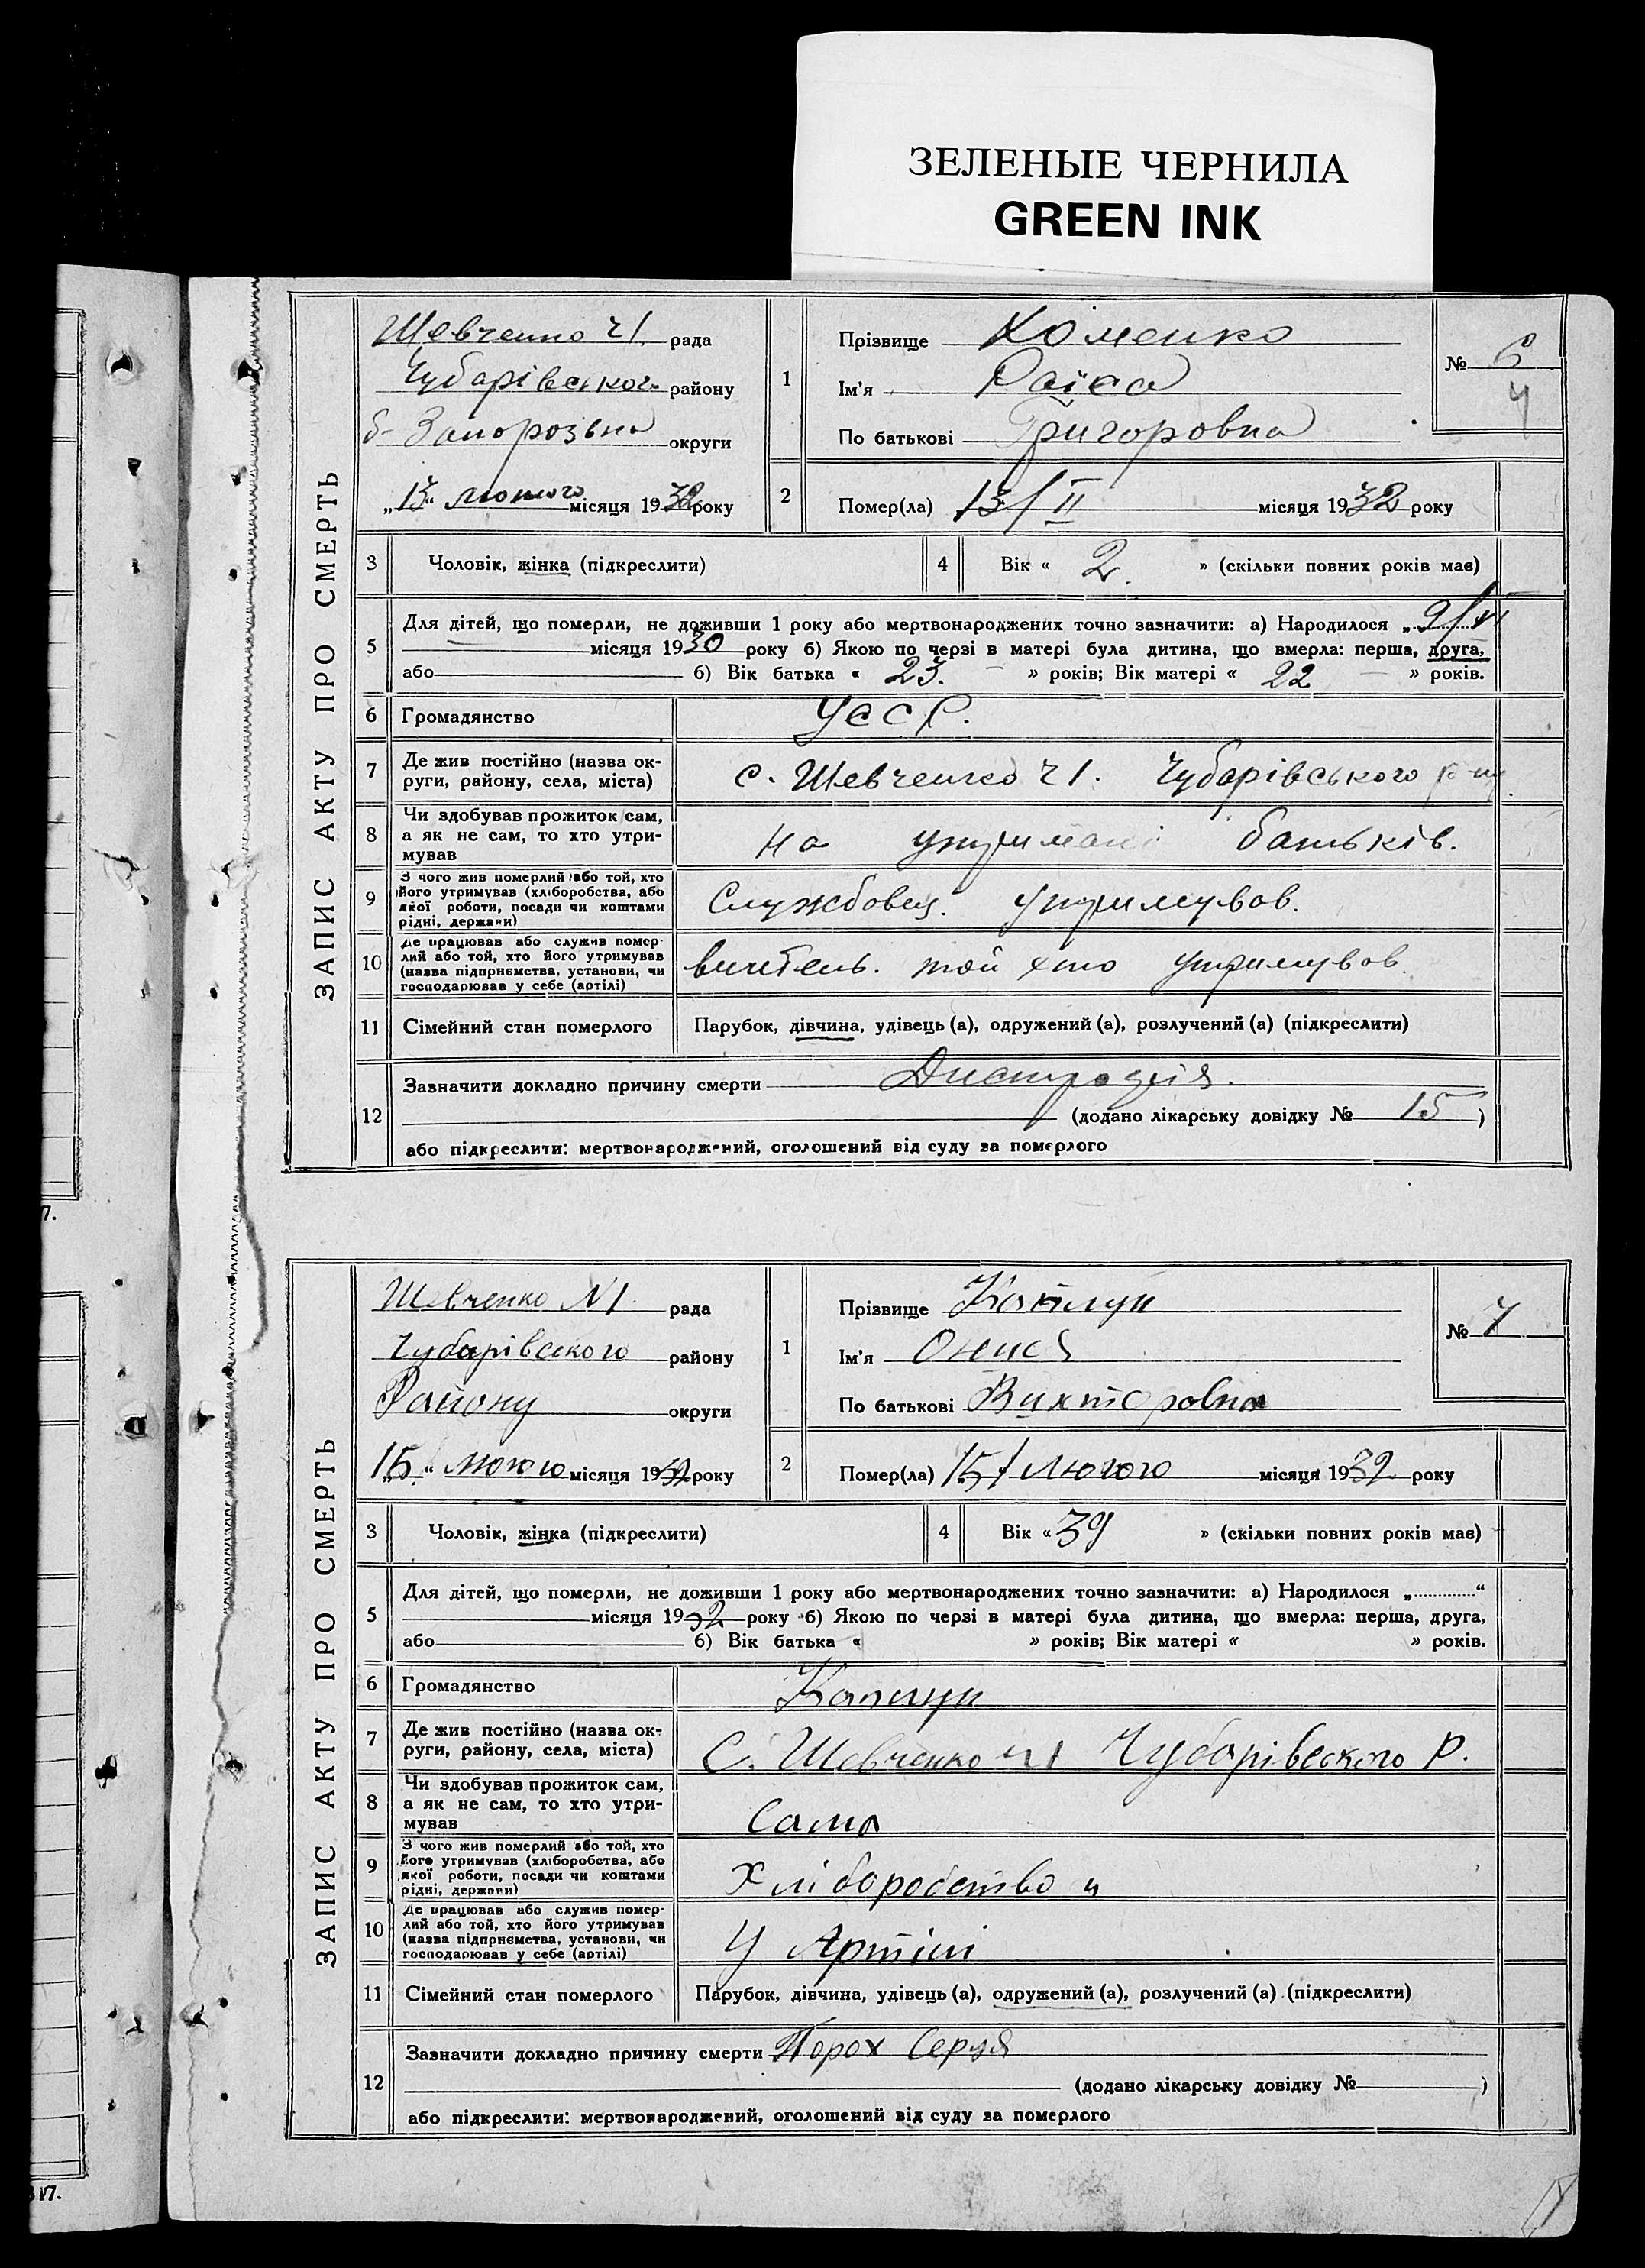 ЗЕЛЕНЫЕ ЧЕРНИЛА
GREEN INK
ЗАПИС АКТУ ПРО СМЕРТЬ
Шевченко ч1. рада
Чубарівського району
б- Запорозька округи
„13“ лютого місяця 1932 року
1
Прізвище Хоменко
Ім'я Раїса
По батькові Григоровна
№ 6
4
2
Помер(ла) 13/II місяця 1932 року
3
Чоловік, жінка (підкреслити)
4
Вік « 2. » (скільки повних років має)
5
Для дітей, що померли, не доживши 1 року або мертвонароджених точно зазначити: а) Народилося „9/VI
місяця 1930 року б) Якою по черзі в матері була дитина, що вмерла: перша, друга,
або б) Вік батька « 23. » років; Вік матері « 22 » років.
6
Громадянство
УССР.
7
Де жив постійно (назва ок-
руги, району, села, міста)
с. Шевченко ч1. Чубарівського р-ну
8
Чи здобував прожиток сам,
а як не сам, то хто утри-
мував
на утримані батьків.
9
З чого жив померлий або той, хто
його утримував (хліборобства, або
якої роботи, посади чи коштами
рідні, держави)
Службовец. утримував.
10
Де працював або служив помер-
лий або той, хто його утримував
(назва підприємства, установи, чи
господарював у себе (артілі)
вчитель. той хто утримував.
11
Сімейний стан померлого
Парубок, дівчина, удівець (а), одружений (а), розлучений (а) (підкреслити)
12
Зазначити докладно причину смерти
(додано лікарську довідку № 15)
або підкреслити: мертвонароджений, оголошений від суду за померлого
7.
ЗАПИС АКТУ ПРО СМЕРТЬ
Шевченко N1. рада
Чубарівского району
Району округи
„15“ лютого місяця 1932 року
1
Прізвище Каплун
Ім'я Онися
По батькові Вихторовна
№ 7
2
Помер(ла) 15/ Лютого місяця 1932 року
3
Чоловік, жінка (підкреслити)
4
Вік « 39 » (скільки повних років має)
5
Для дітей, що померли, не доживши 1 року або мертвонароджених точно зазначити: а) Народилося „ “
місяця 1932 року б) Якою по черзі в матері була дитина, що вмерла: перша, друга,
або б) Вік батька « » років; Вік матері « » років.
6
Громадянство
Каплун
7
Де жив постійно (назва ок-
руги, району, села, міста)
С. Шевченко ч1 Чубарівського р.
8
Чи здобував прожиток сам,
а як не сам, то хто утри-
мував
Сама
9
З чого жив померлий або той, хто
його утримував (хліборобства, або
якої роботи, посади чи коштами
рідні, держави)
Хліборобство
10
Де працював або служив помер-
лий або той, хто його утримував
(назва підприємства, установи, чи
господарював у себе (артілі)
У Артілі
11
Сімейний стан померлого
Парубок, дівчина, удівець (а), одружений (а), розлучений (а) (підкреслити)
12
Зазначити докладно причину смерти Порох Серця
(додано лікарську довідку № )
або підкреслити: мертвонароджений, оголошений від суду за померлого